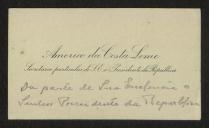 Americo da Costa Leme
Secretario particular de S. E. o Presidente da Republica
Da parte de Sua Excelencia o
Senhor Presidente da Republica